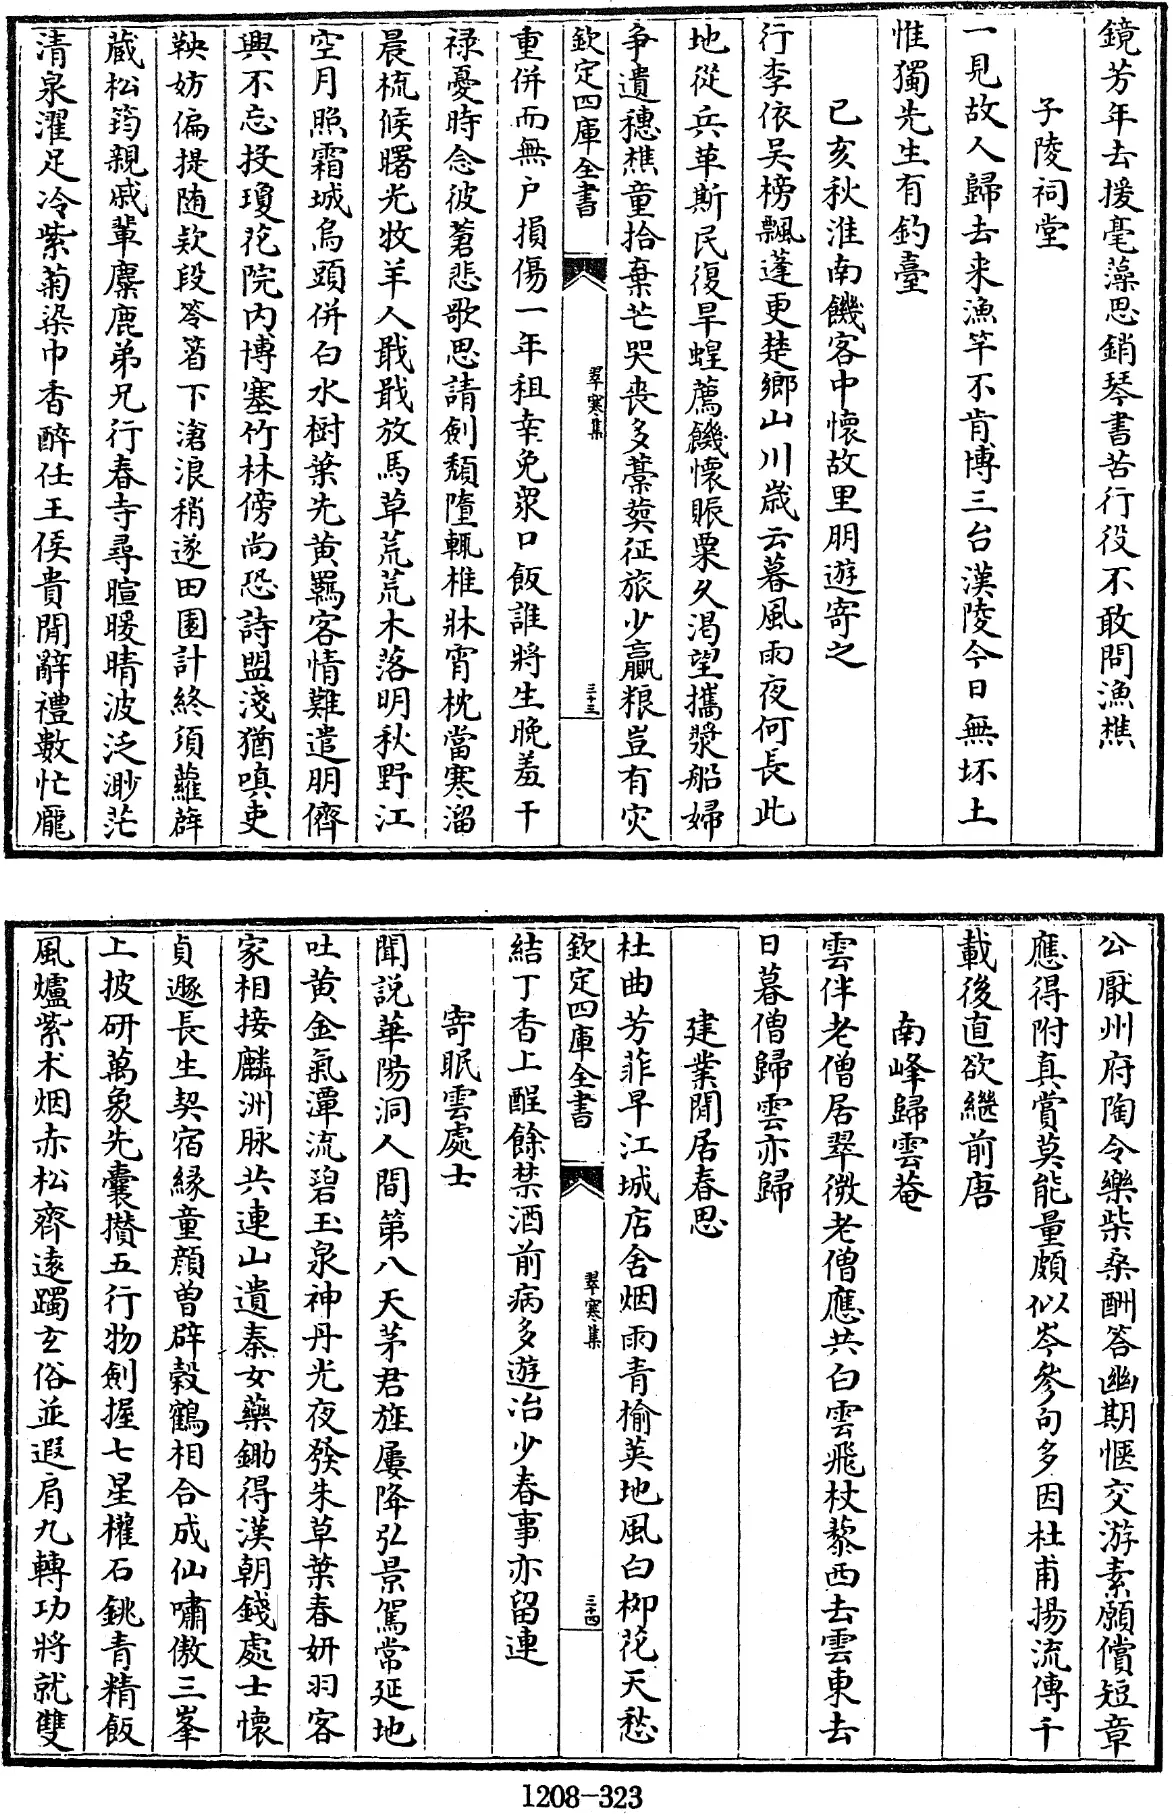 鏡芳年去援毫藻思銷琴書苦行役不敢問漁樵
子陵祠堂
一見故人歸去来漁竿不肯博三台漢陵今日無坏土
惟獨先生有釣臺
已亥秋淮南饑客中懐故里朋遊寄之
行李依吴榜飄蓬更楚鄉山川嵗云暮風雨夜何長此
地從兵革斯民復旱蝗薦饑懐賑粟久渇望攜漿船婦
争遺穗樵童拾棄芒哭喪多藁葬征旅少羸粮豈有灾
欽定四庫全書
翠寒集
三十三
重併而無户損傷一年租幸免衆口飯誰將生晚羞干
禄憂時念彼蒼悲歌思請劍頽墮輒椎牀宵枕當寒溜
晨梳候曙光牧羊人戢戢放馬草荒荒木落明秋野江
空月照霜城烏頭併白水樹葉先黄羈客情難遣朋儕
興不忘投瓊花院内博塞竹林傍尚恐詩盟淺猶嗔吏
鞅妨偏提随欵段笭箵下滄浪稍遂田園計終須蘿薜
蔵松筠親戚輩麋鹿弟兄行春寺尋暄暖晴波泛渺茫
清泉濯足冷紫菊染巾香醉任王侯貴閒辭禮數忙龎
公厭州府陶令樂柴桑酬答幽期愜交游素願償短章
應得附真賞莫能量頗似岑參句多因杜甫揚流傳千
載後直欲繼前唐
南峰歸雲菴
雲伴老僧居翠微老僧應共白雲飛杖藜西去雲東去
日暮僧歸雲亦歸
建業閒居春思
杜曲芳菲早江城店舍烟雨青榆莢地風白栁花天愁
欽定四庫全書
翠寒集
三十四
結丁香上酲餘禁酒前病多遊冶少春事亦留連
寄眠雲處士
聞説華陽洞人間第八天茅君旌屢降弘景駕常延地
吐黄金氣潭流碧玉泉神丹光夜發朱草葉春妍羽客
家相接麟洲脉共連山遺秦女藥鋤得漢朝錢處士懐
貞遯長生契宿縁童顔曾辟穀鶴相合成仙嘯傲三峯
上披研萬象先囊攅五行物劍握七星權石銚青精飯
風爐紫术烟赤松齊逺躅玄俗並遐肩九轉功將就雙
1208-323